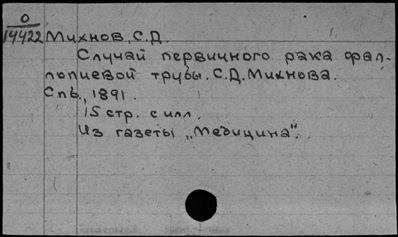 О
14422 Михнов, С.Д.
Случай первичного рака фал-
лопиевой трубы. С.Д. Михнова.
Спб., 1891.
15 стр. с илл.
Из газеты „Медицина".